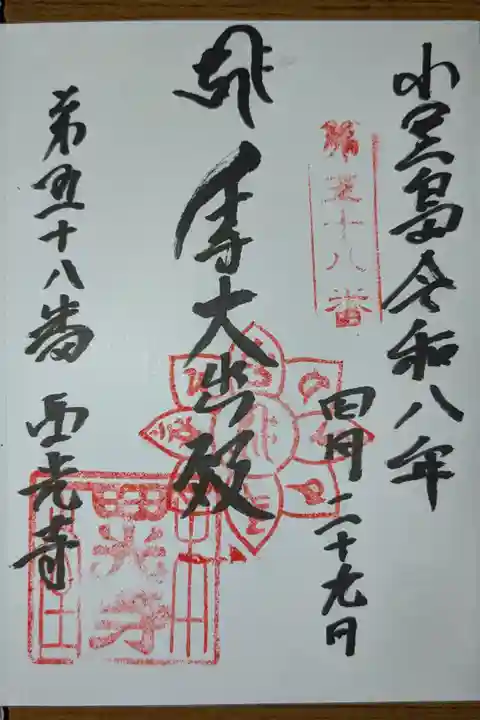 小豆島 令和八年
四月二十九日
第五十八番
本尊大悲殿
第五十八番 西光寺
西光寺